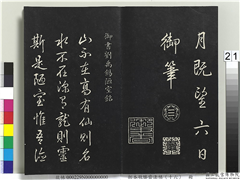 月既望六日
御筆
御書劉禹錫陋室銘
山不在高有仙則名
水不在深有龍則靈
斯是陋室惟吾德